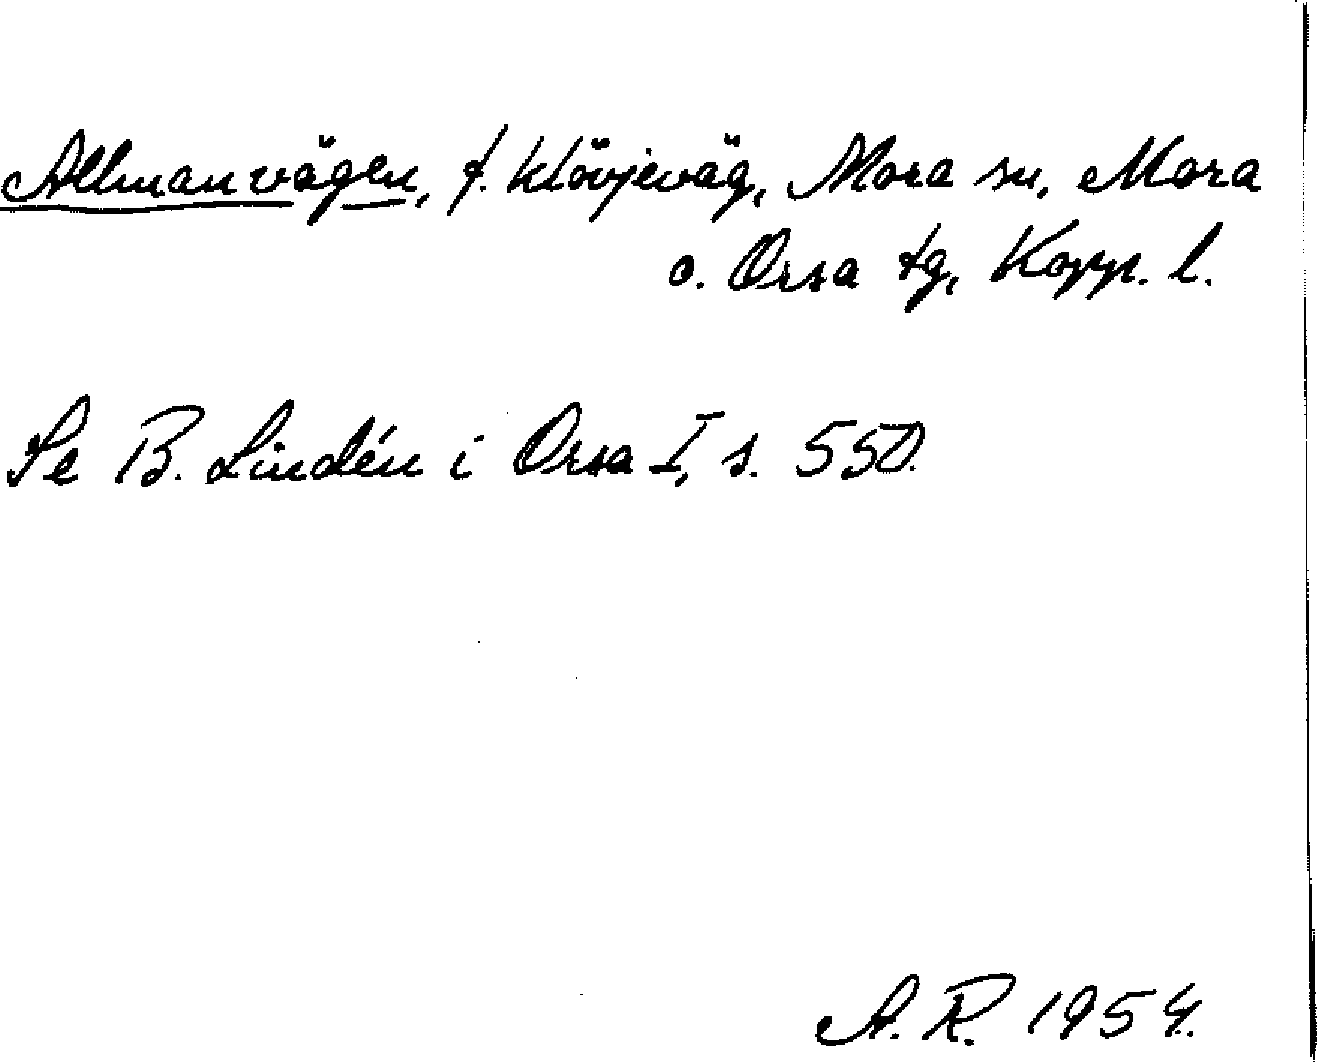 Allmanvägen, f. klövjeväg, Mora sn, Mora
o. Orsa tg, Kopp. l.
Se B. Lindén i Orsa I, s. 550.
A. R. 1954.